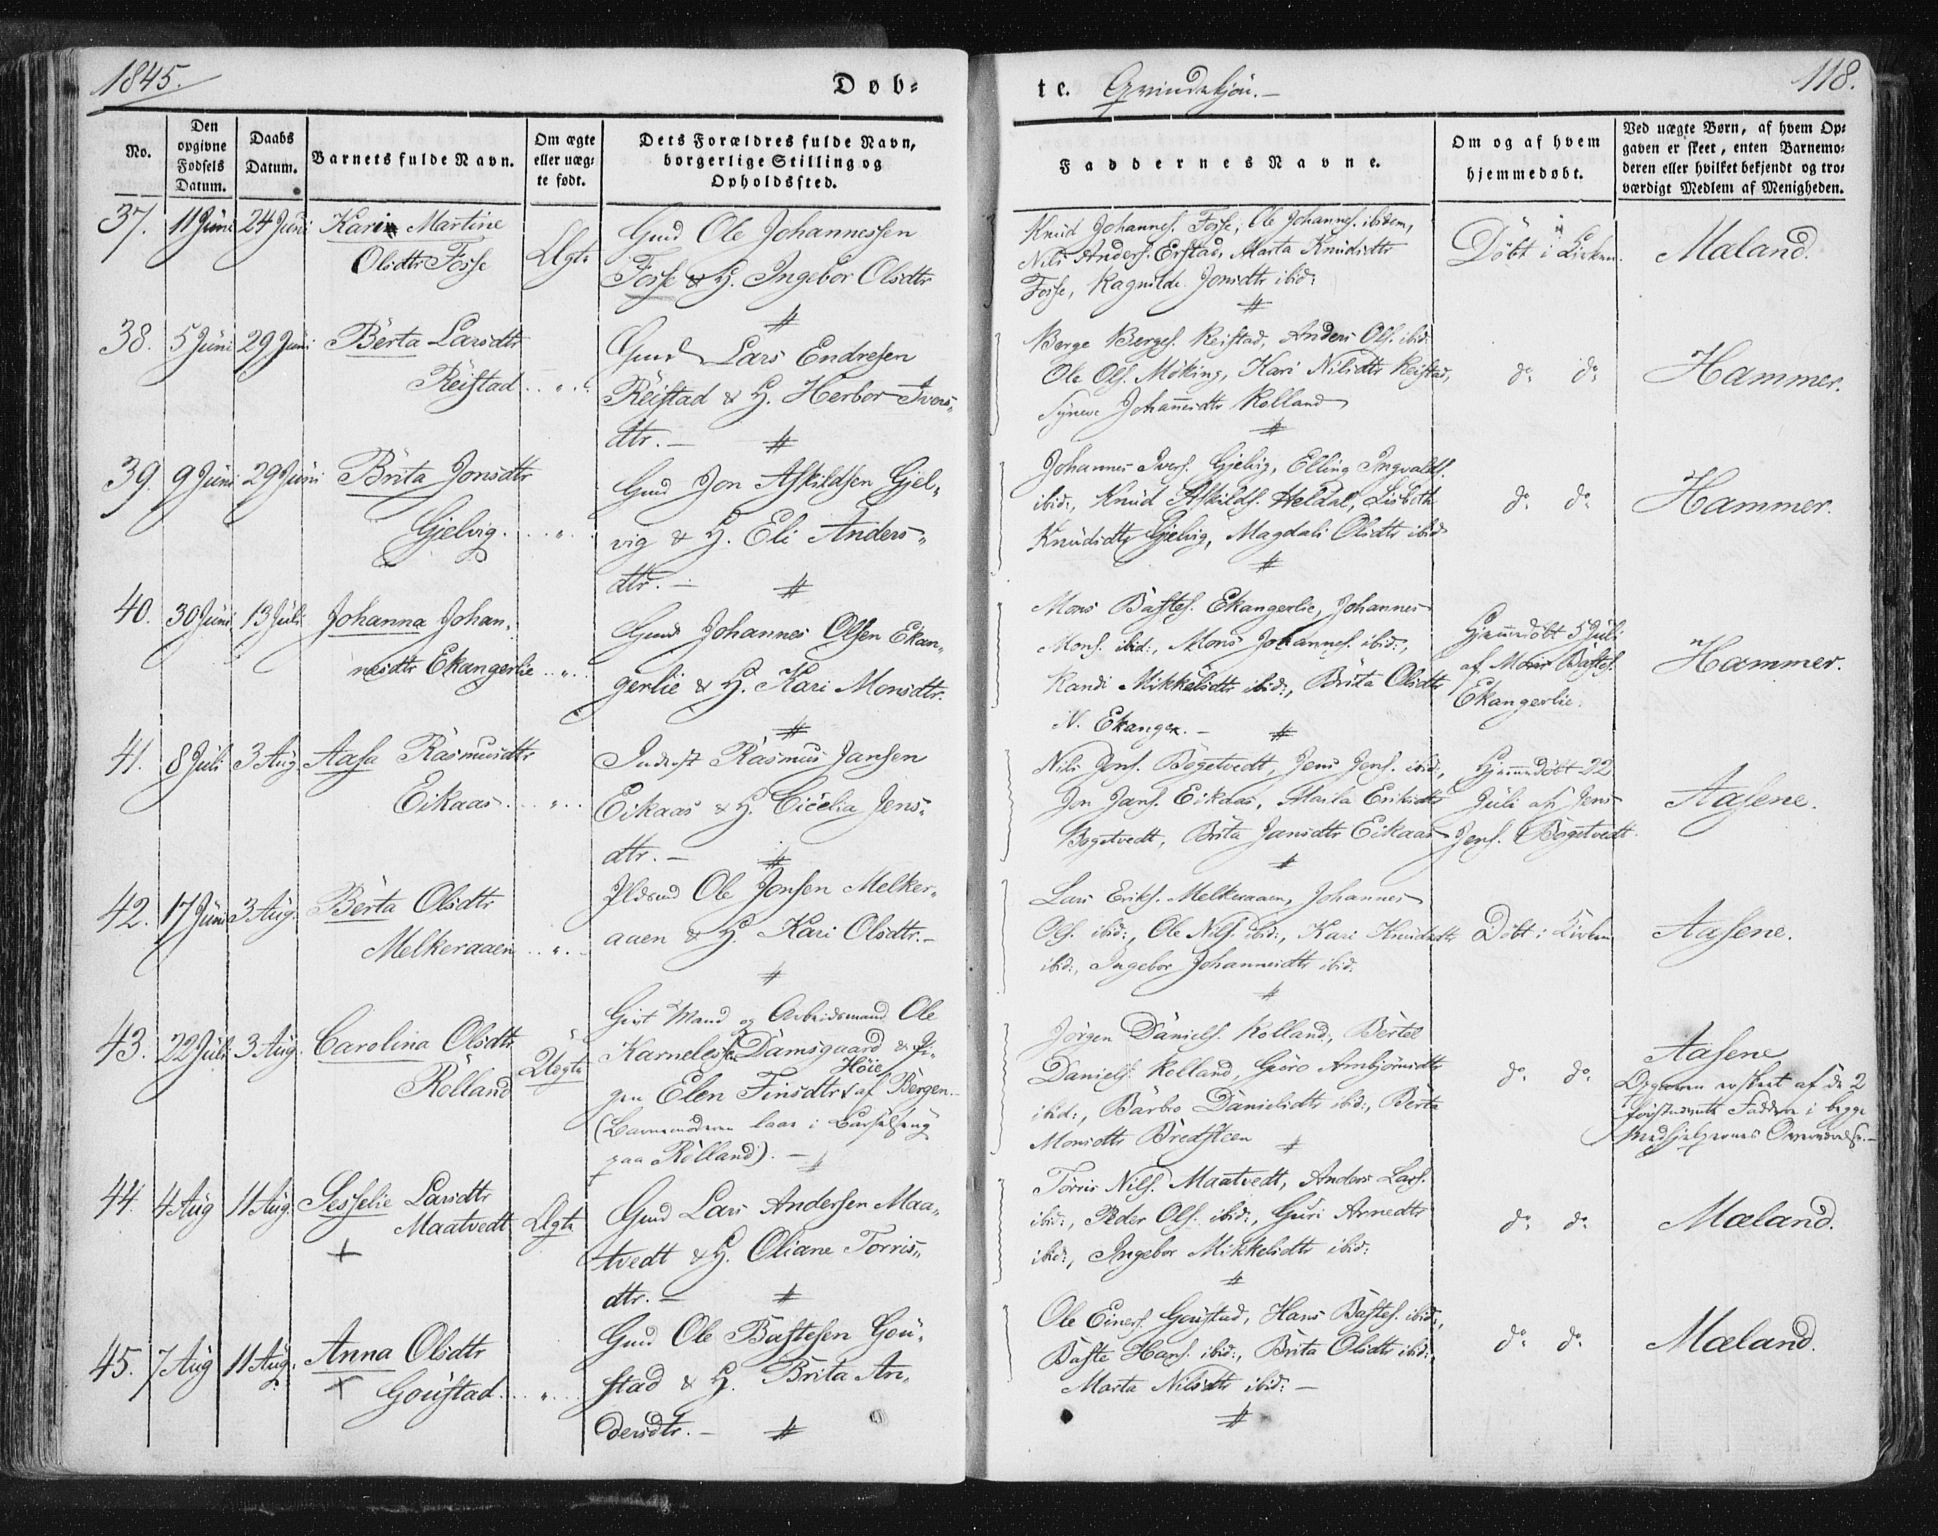 1845.
Døb-
te. Qvindekjön.-
118.
No.
Den opgivne Fødsels Datum.
Daabs Datum.
Barnets fulde Navn.
Om ægte eller uæg-te født.
Dets Forældres fulde Navn, borgerlige Stilling og Opholdssted.
Faddernes Navne.
Om og af hvem hjemmedøbt.
Ved uægte Børn, af hvem Op-gaven er skeet, enten Barnemo-deren eller hvilket bekjendt og tro-værdigt Medlem af Menigheden.
37. 11 Juni 24 Juni Karin Martine
Olsdtr Fosse
Ægte
Gmd Ole Johannessen
Fosse & H. Ingebor Olsdtr
#
Knud Johannes. Fosse, Ole Johannes. ibidem,
Nils Anders. Erstad, Marta Knudsdtr
Fosse, Ragnilde Jonsdtr ibid:
#
Döbt i Kirken.
Mæland.
38. 5 Juni 29 Juni Berta Larsdtr
Reistad . . " . .
Gmd Lars Endresen
Reistad & H. Herbor Ivers-
dtr. - #
Berge Berges. Reistad, Anders Ols. ibid:
Ole Ols. Möking, Kari Nilsdtr Reistad,
Syneve Johannisdtr Rolland
#
do do
Hammer.
39. 9 Juni 29 Juni Brita Jonsdtr
Gjelvig. . . " . .
Gmd Jon Askildsen Gjel-
vig & H. Eli Anders-
dtr. - #
Johannes Ivers. Gjelvig, Elling Ingvalds.
ibid:, Knud Askilds. Heldal, Lisbeth
Knudsdtr Gjelvig, Magdali Olsdtr ibid
#
do do
Hammer.
40. 30 Juni 13 Juli Johanna Johan-
nesdtr Ekangerlie . . " . .
Gmd Johannes Olsen Ekan-
gerlie & H. Kari Monsdtr.
#
Mons Bastes. Ekangerlie, Johannes
Mons. ibid:, Mons Johannes. ibid:,
Randi Mikkelsdtr ibid:, Brita Olsdtr
N. Ekanger. - #
Hjemmedöbt 5 Juli
af Mons Bastes.
Ekangerlie.
Hammer.
41. 8 Juli 3 Aug. Aasa Rasmusdtr
Eikaas . . " . .
Inderst Rasmus Jansen
Eikaas & H. Cicelia Jens-
dtr. - #
Nils Jens. Bögetvedt, Jens Jens. ibid:,
Jon Jans. Eikaas, Marita Eriksdtr
Bogetvedt, Brita Jansdtr Eikaas
#
Hjemmedöbt 22
Juli af Jens
Jens. Bögetvedt.
Aasene.
42. 17 Juni 3 Aug. Berta Olsdtr
Melkeraaen . . " . .
Pldsmd Ole Jonsen Melker-
aaen & H. Kari Olsdtr. -
#
Lars Eriks. Melkeraaen, Johannes
Ols. ibid:, Ole Nils. ibid:, Kari Knudsdtr
ibid:, Ingebor Johannesdtr ibid:
#
Döbt i Kirken
Aasene.
43. 22 Juli 3 Aug. Carolina Olsdtr
Rolland
Uægte
Gift Mand og Arbeidsmand Ole
Karnelessen Damsgaard & Pi-
gen Elen Finsdtr Höie af Bergen.
(Barnemoderen laae i Barselseng
paa Rolland). - #
Jörgen Daniels. Rolland, Bertel
Daniels. Rolland, Guro Arnbjörnsdtr
ibid:, Barbro Danielsdtr ibid:, Berta
Monsdtr Bredsteen #
do do
Aasene.
Opgaven er skeet af de 2
förstnævnte Faddere i begge
Medhjelpernes Overværelse. -
44. 4 Aug 11 Aug. Sesselie Larsdtr
Maatvedt
+
Ægte
Gmd Lars Andersen Maa-
tvedt & H. Oliane Torris-
dtr. - #
Torris Nils. Maatvedt, Anders Lars.
ibid:, Peder Ols. ibid:, Guri Arnedtr
ibid:, Ingebor Mikkelsdtr ibid:
#
do do
Mæland.
45. 7 Aug 11 Aug. Anna Olsdtr
+ Goustad . . " . .
Gmd Ole Bastesen Gou-
stad & H. Brita An-
dersdtr. - #
Ole Einers. Goustad, Hans Bastes. ibid:,
Baste Hans. ibid:, Brita Olsdtr ibid:,
Marta Nilsdtr ibid: -
#
do do
Mæland.